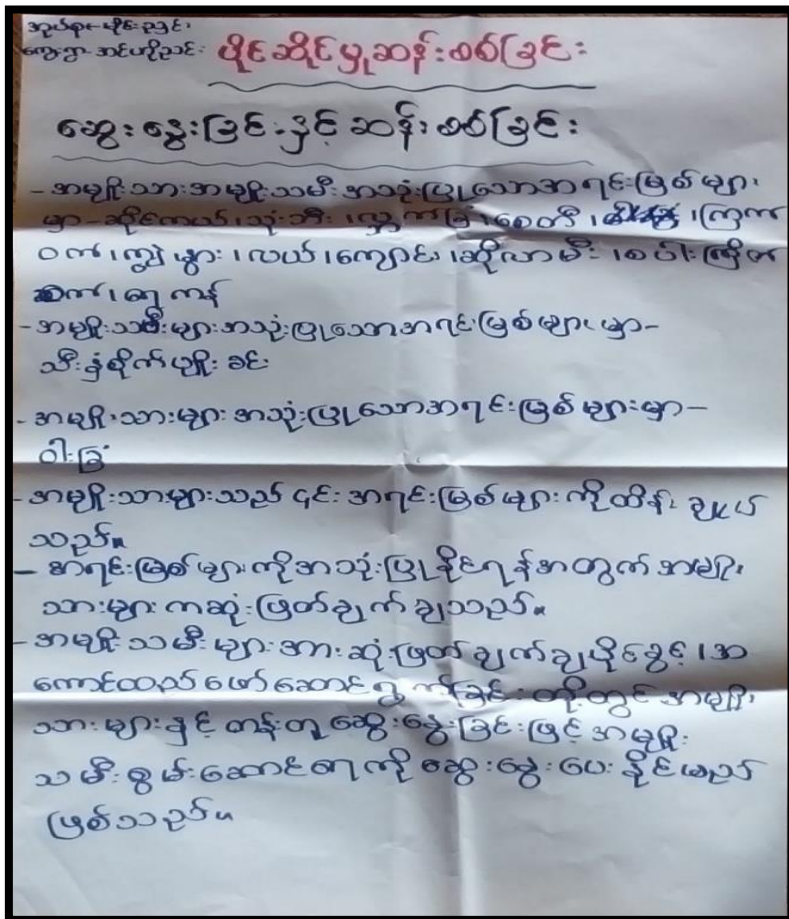 အုပ်စု - မှိုင်းညှင်း
ကျေးရွာ - အင်ဟိုညင်း
ပိုင်ဆိုင်မှုဆန်းစစ်ခြင်း
ဆွေးနွေးခြင်းနှင့် ဆန်းစစ်ခြင်း
- အမျိုးသားအမျိုးသမီးအသုံးပြုသောအရင်းမြစ်များ
မှာ - ဆိုင်ကယ်၊ သုံးဘီး၊ ခြံ၊ စေတီ၊ ကြက်
ဝက်၊ ကျွဲ နွား၊ လယ်၊ ကျောင်း၊ ဆိုလာမီး၊ စပါးကြိတ်
စက်၊ ရေကန်
- အမျိုးသမီးများအသုံးပြုသောအရင်းမြစ်များမှာ -
သီးနှံစိုက်ပျိုးခင်း
- အမျိုးသားများအသုံးပြုသောအရင်းမြစ်များမှာ -
ဝါးခြံ
- အမျိုးသားများသည် ၎င်းအရင်းမြစ်များကိုထိန်းချုပ်
သည်။
- အရင်းမြစ်များကိုအသုံးပြုနိုင်ရန်အတွက် အမျိုး
သားများကဆုံးဖြတ်ချက်ချသည်။
- အမျိုးသမီးများအားဆုံးဖြတ်ချက်ချပိုင်ခွင့်၊ အ
ကောင်ထည်ဖော်ဆောင်ရွက်ခြင်းတို့တွင် အမျိုး
သားများနှင့် တန်းတူဆွေးနွေးခြင်းဖြင့် အမျိုး
သမီးစွမ်းဆောင်ရာကိုဆွေးနွေးပေးနိုင်မည်
ဖြစ်သည်။